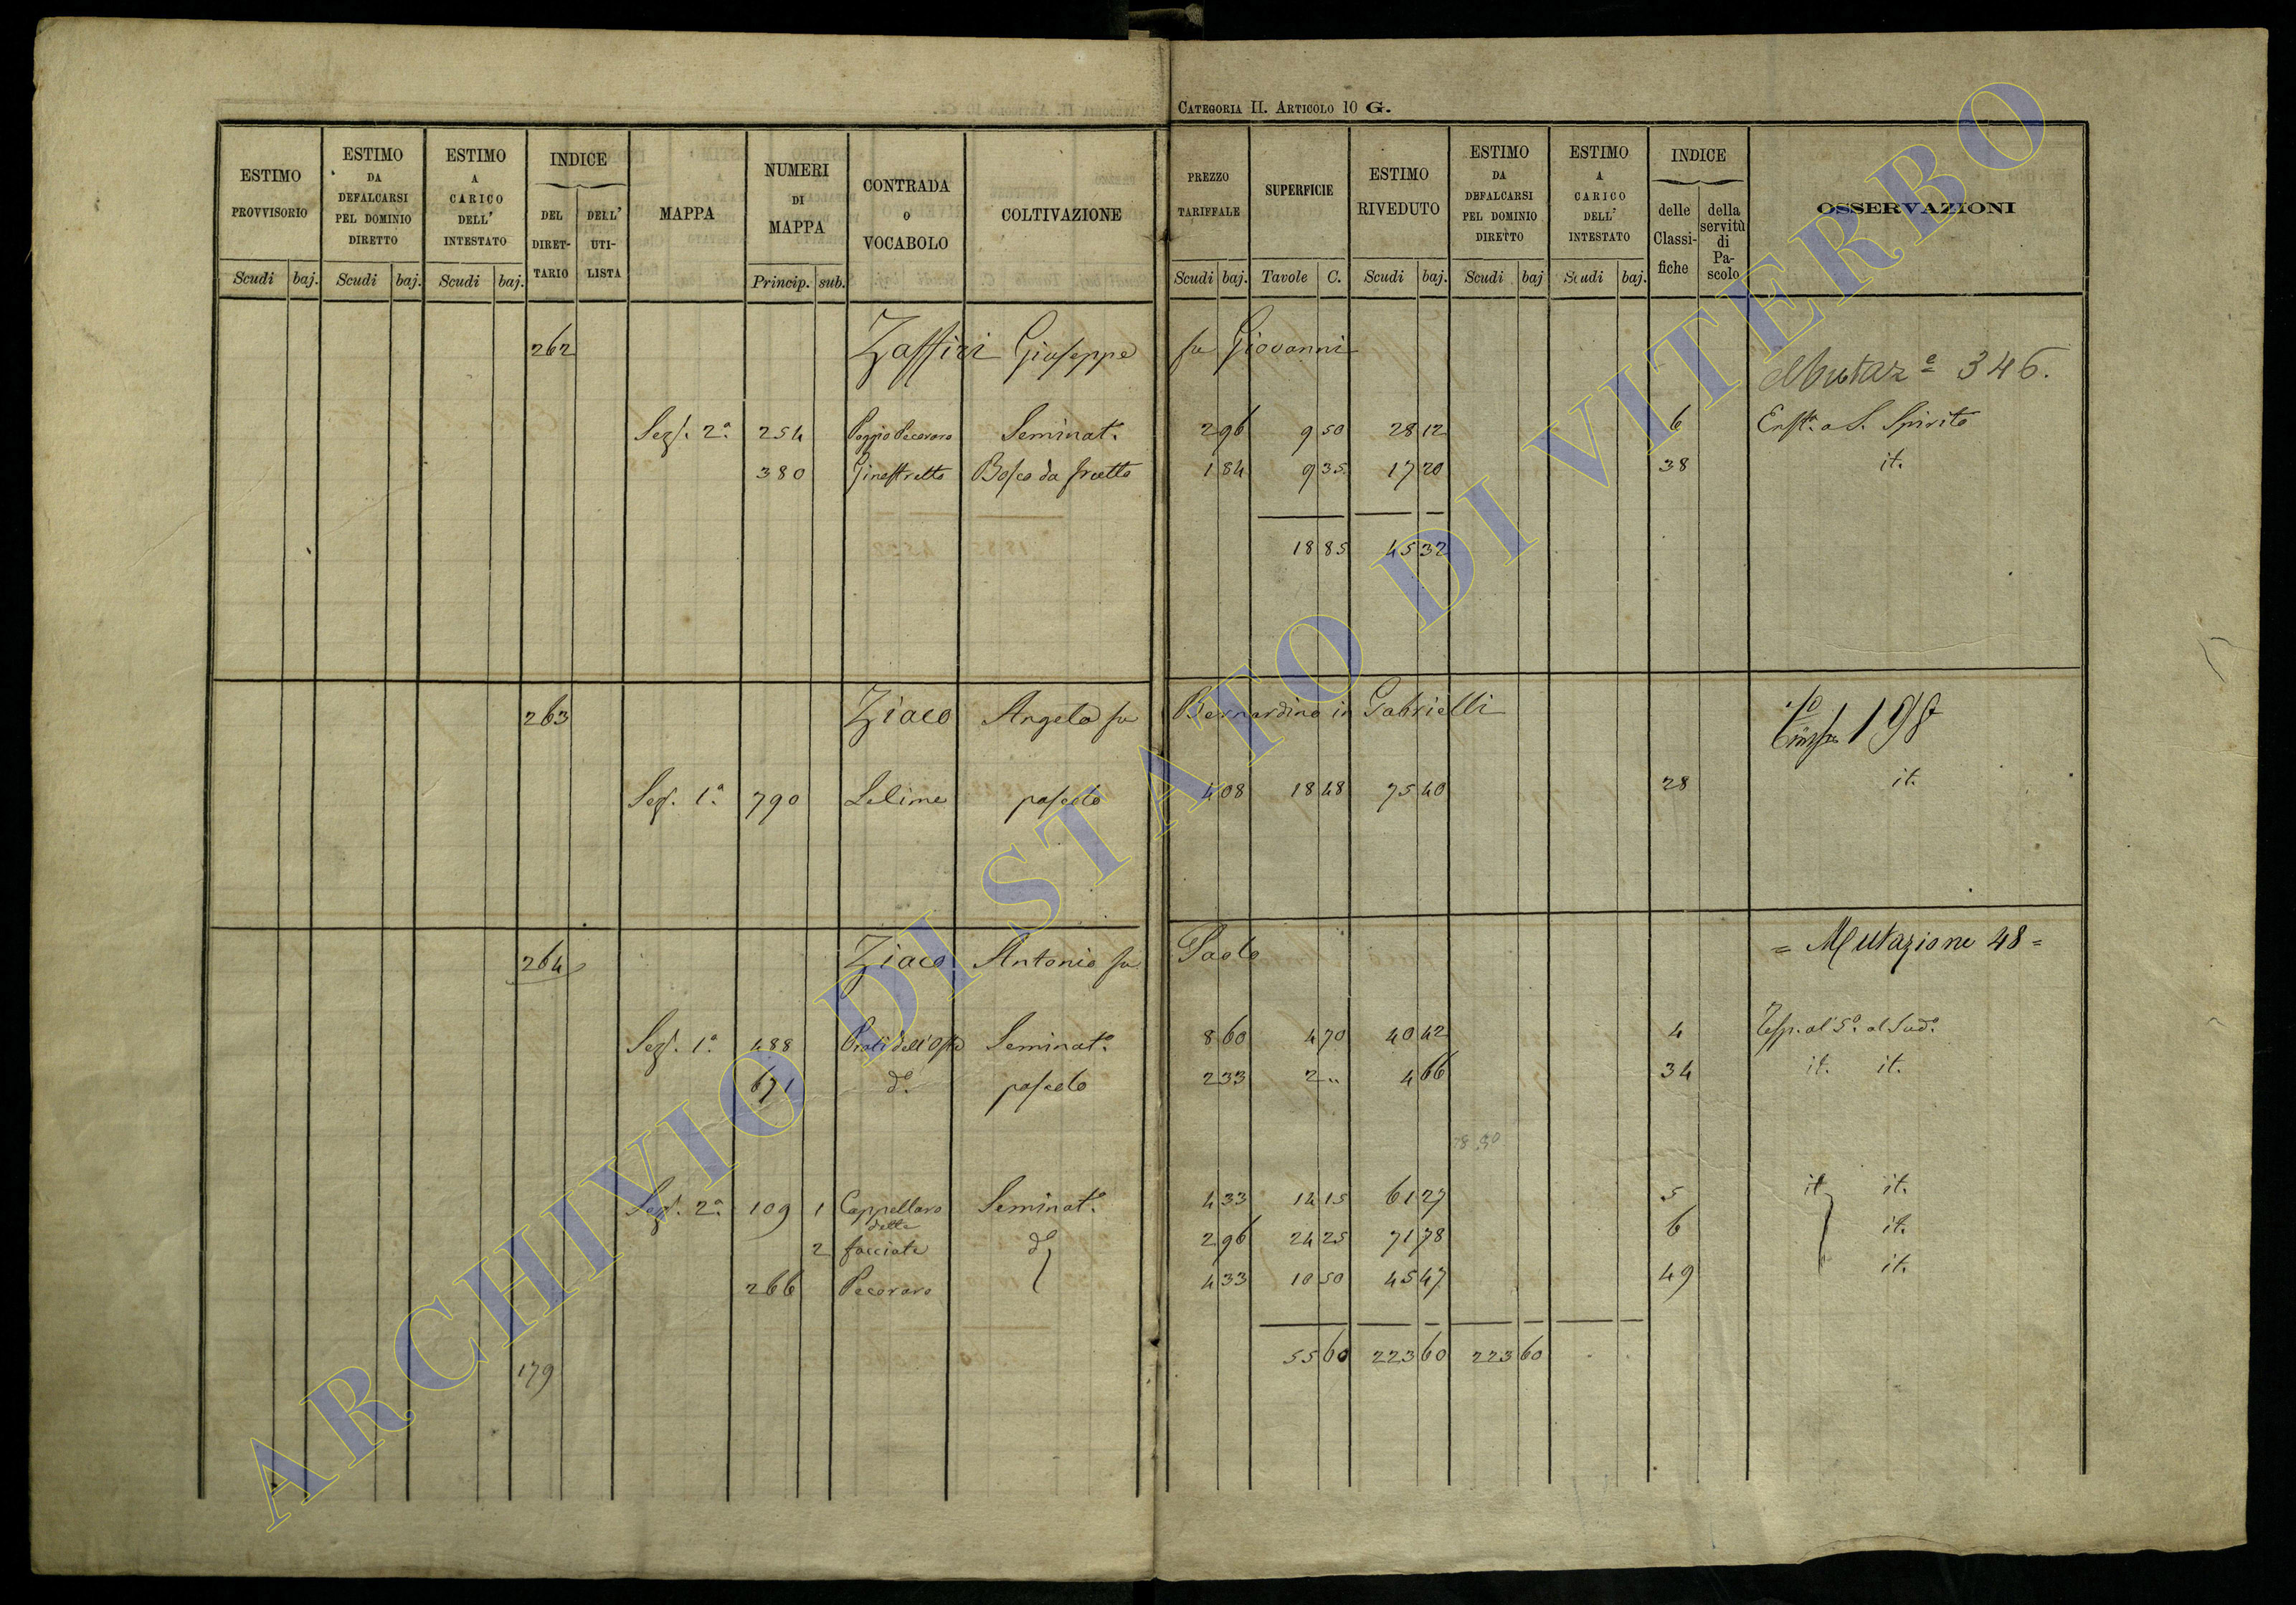 CATEGORIA II. ARTICOLO 10 G.
ESTIMO PROVVISORIO Scudi baj.
ESTIMO DA DEFALCARSI PEL DOMINIO DIRETTO Scudi baj.
ESTIMO A CARICO DELL' INTESTATO Scudi baj.
INDICE DEL DIRET-TARIO DELL' UTI-LISTA
MAPPA
NUMERI DI MAPPA Princip. sub.
CONTRADA O VOCABOLO
COLTIVAZIONE
PREZZO TARIFFALE Scudi baj.
SUPERFICIE Tavole C.
ESTIMO RIVEDUTO Scudi baj.
ESTIMO DA DEFALCARSI PEL DOMINIO DIRETTO Scudi baj
ESTIMO A CARICO DELL' INTESTATO Scudi baj.
INDICE delle Classi-fiche della servitù di Pa-scolo
OSSERVAZIONI
262 Zaffiri Giuseppe fu Giovanni
Mutaz.e 346.
Sez. 2a. 254 Poggio Pecoraro Seminat.o 2 96 9 50 28 12 6 Enft. a S. Spirito
380 Ginestretto Bosco da frutto 1 84 9 35 17 20 38 it.
18 85 45 32
263 Ziaco Angelo fu Bernardino in Gabrielli
198
Sez. 1a. 790 Lelime pascolo 4 08 18 48 75 40 28 it.
264 Ziaco Antonio fu Paolo
= Mutazione 48 =
Sez. 1a. 488 Prati dell'Oste Seminat.o 8 60 4 70 40 42 4
671 do. pascolo 2 33 2 .. 4 66 34 it. it.
Sez. 2a. 109 1 Cappellaro Seminat.o 4 33 14 15 61 27 5 it. it.
dette
2 facciate do 2 96 24 25 71 78 6 it.
266 Pecoraro 4 33 10 50 45 47 49 it.
55 60 223 60 223 60
179
ARCHIVIO DI STATO DI VITERBO